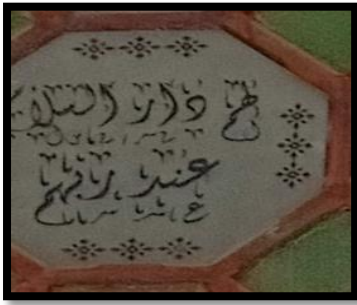 لهم دار السلام
عند ربهم